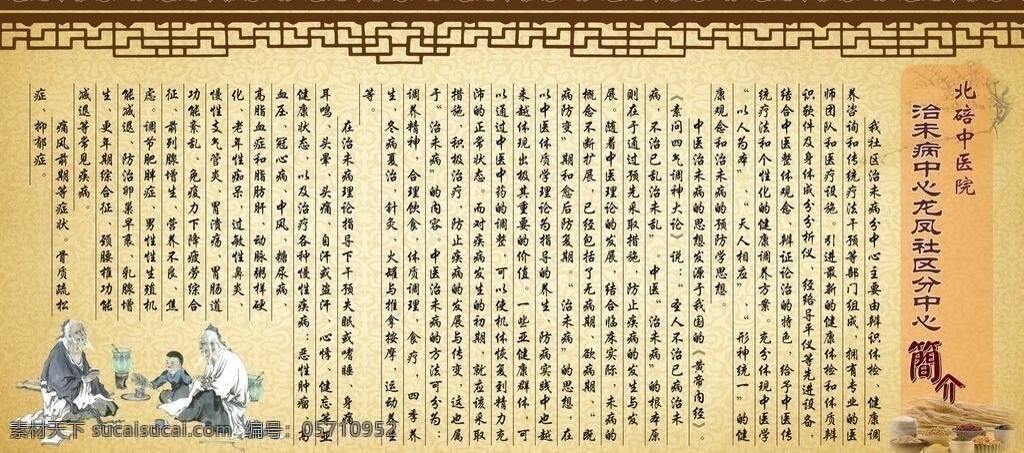 北碚中医院
治未病中心龙凤社区分中心
簡介
我社区治未病分中心主要由辩识体检、健康调
养咨询和传统疗法干预等部门组成，拥有专业的医
师团队和医疗设施。引进最新的健康体检和体质辩
识软件及身体成分分析仪，经络导平仪等先进设备，
结合中医整体观念、辩证论治的特色，给予中医传
统疗法和个性化的健康调养方案，充分体现中医学
“以人为本”、“天人相应”、“形神统一”的健
康观念和中医治未病的预防学思想。
中医治未病的思想发源于我国的《黄帝内经》。
《素问四气调神大论》说：“圣人不治已病治未
病，不治已乱治未乱”中医“治未病”的根本原
则在于通过预先采取措施，防止疾病的发生与发
展。随着中医理论的发展，结合临床实际，未病的
概念不断扩展，已经包括了无病期、欲病期、“既
病防变”期和愈后防复期。“治未病”的思想，在
以中医体质学理论为指导的养生、防病实践中也越
来越体现出极其重要的价值。一些亚健康群体，可
以通过中医中药的调整，可以使机体恢复到精力充
沛的正常状态，而对疾病发生的初期，就应该采取
措施，积极治疗，防止疾病的发展与传变，这也属
于“治未病”的内容。中医治未病的方法可分为：
调养精神，合理饮食、体质调理、食疗、四季养
生、冬病夏治、针灸、火罐与推拿按摩，运动养生
等。
在治未病理论指导下干预失眠或嗜睡、身痛、
耳鸣、头晕、头痛、自汗或盗汗、心悸、健忘等亚
健康状态，以及治疗各种慢性疾病：恶性肿瘤、高
血压、冠心病、中风、糖尿病、
高脂血症和脂肪肝、动脉粥样硬
化、老年性痴呆，过敏性鼻炎、
慢性支气管炎、胃溃疡、胃肠道
功能紊乱、免疫力下降疲劳综合
征、前列腺增生、营养不良、焦
虑。调节肥胖症、男性性生殖机
能减退、防治卵巢早衰、乳腺增
生、更年期综合征、颈腰椎功能
减退等常见疾病。
痛风前期等症状。骨质疏松
症、抑郁症。
素材天下 sucaisucai.com 编号：05710952